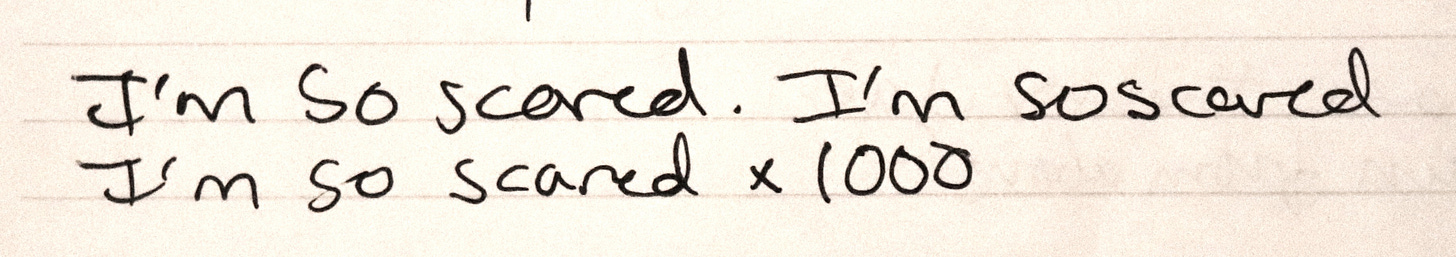 I'm so scared. I'm so scared
I'm so scared x 1000